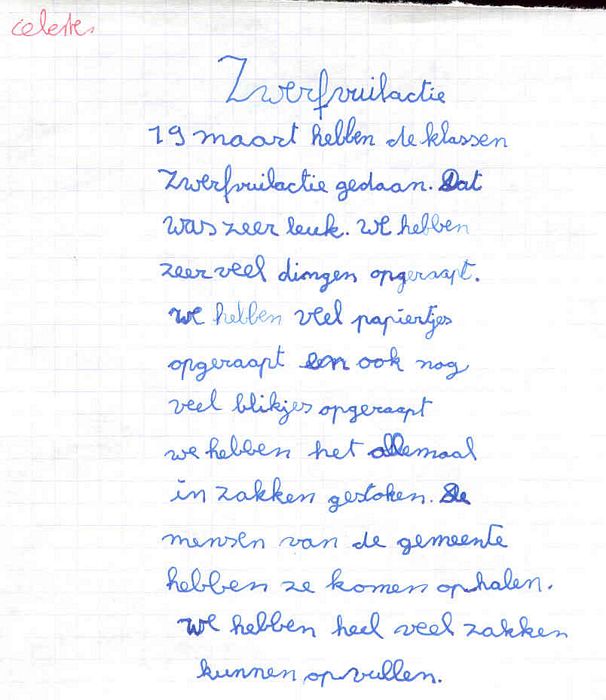 celeste
Zwerfvuilactie
19 maart hebben de klassen
Zwerfvuilactie gedaan. Dat
was zeer leuk. We hebben
zeer veel dingen opgeraapt.
we hebben veel papiertjes
opgeraapt en ook nog
veel blikjes opgeraapt
we hebben het allemaal
in zakken gestoken. De
mensen van de gemeente
hebben ze komen ophalen.
We hebben heel veel zakken
kunnen opvullen.